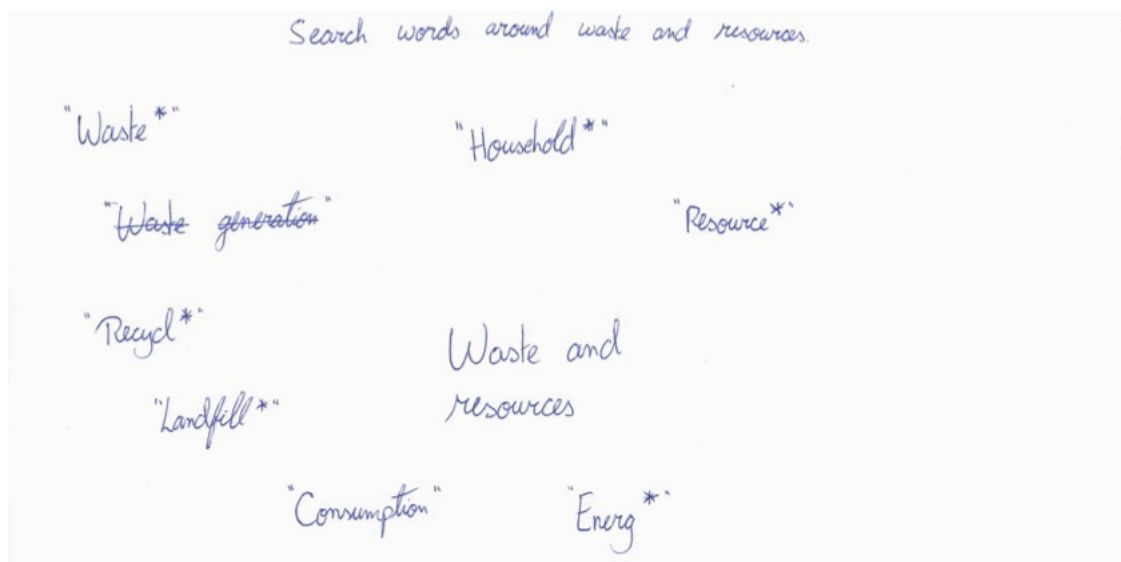 Search words around waste and resources.
"Waste*"
"Household*"
"Waste generation"
"Resource*"
"Recycl*"
Waste and
resources
"Landfill*"
"Consumption"
"Energ*"